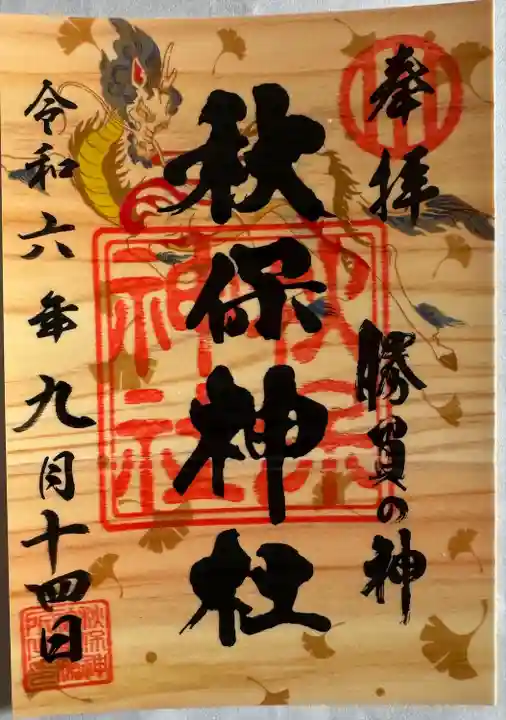 奉拝
勝負の神
秋保神社
令和六年九月十四日
秋保神社